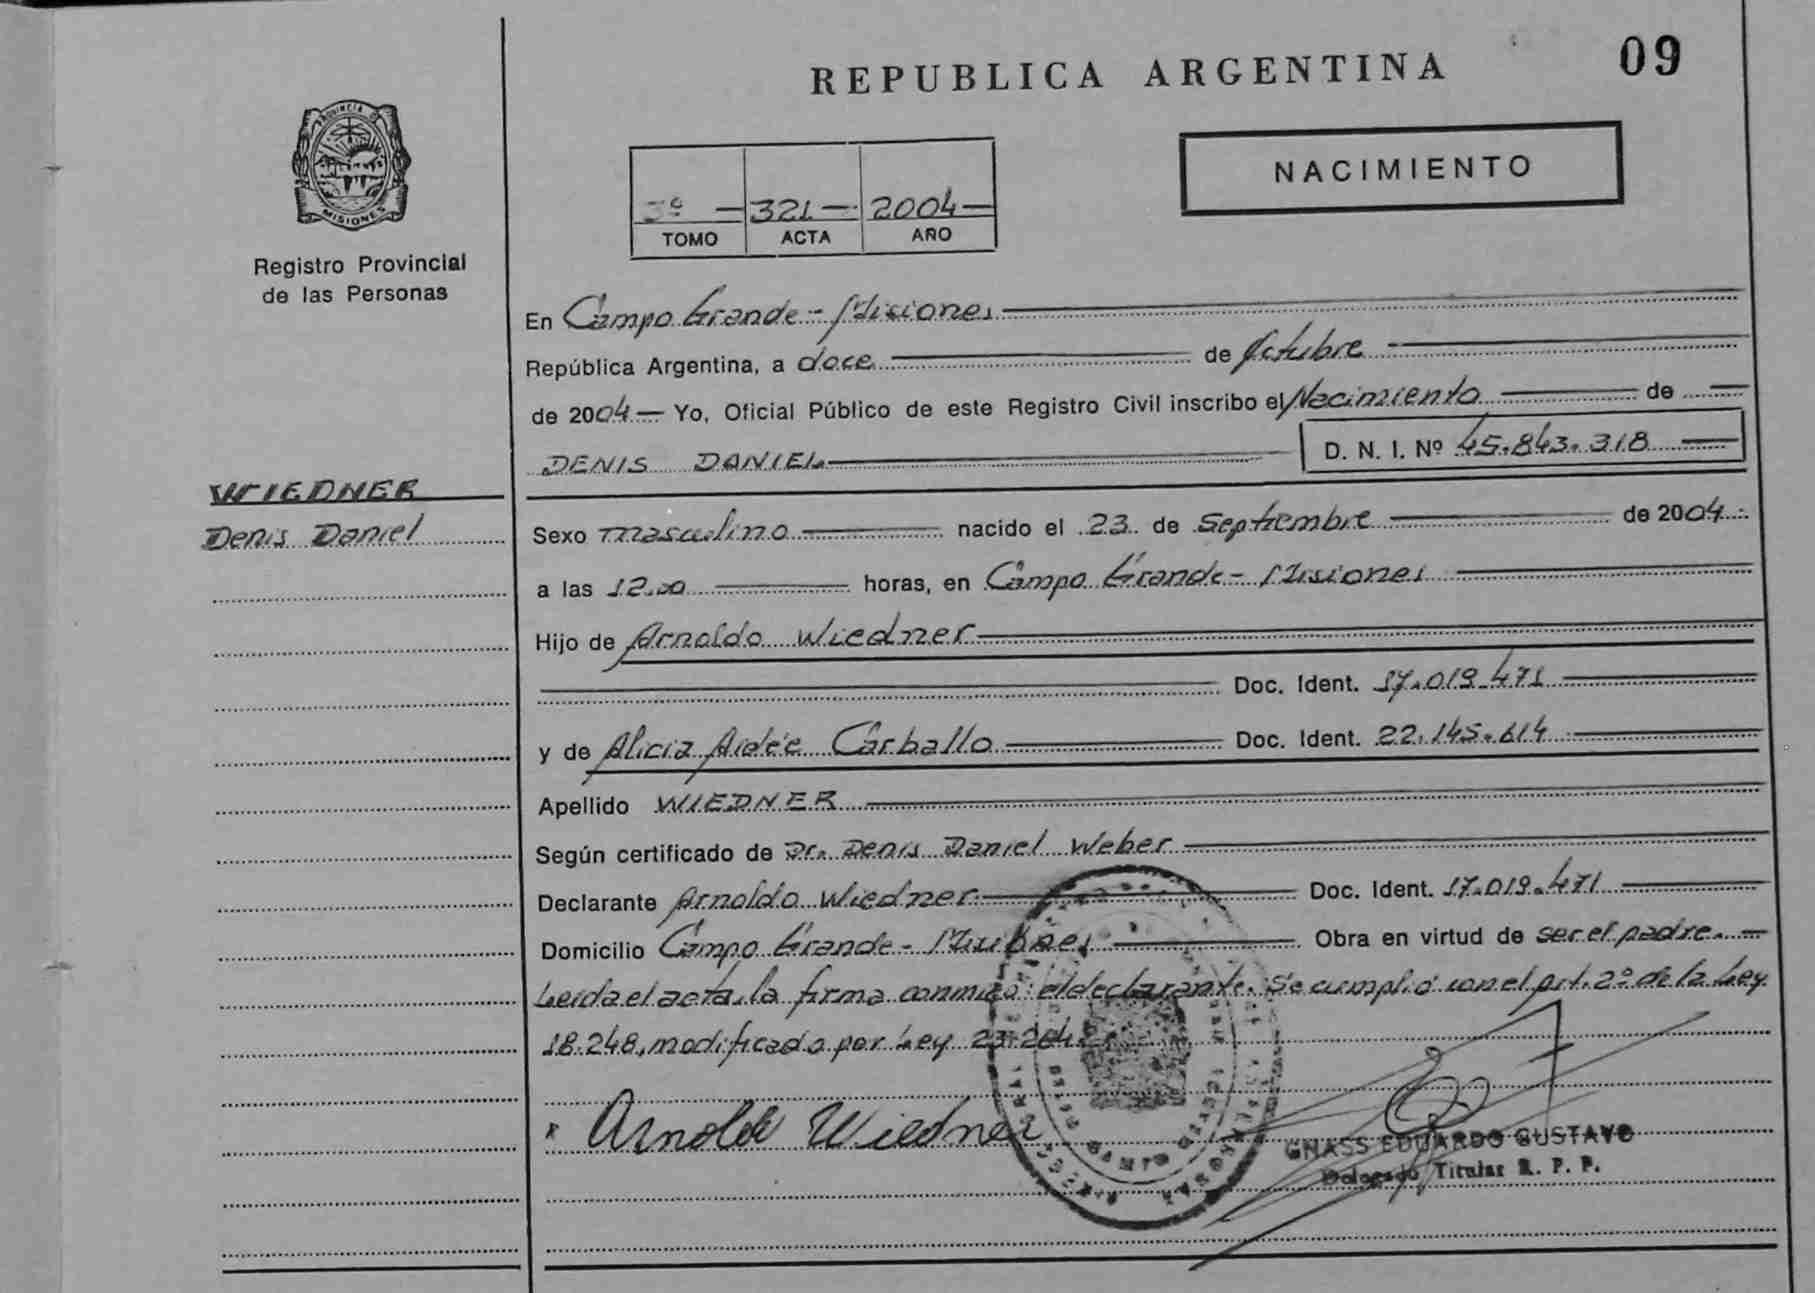 REPUBLICA ARGENTINA
09
PROVINCIA DE
MISIONES
Registro Provincial
de las Personas
NACIMIENTO
3º — 321 — 2004 —
TOMO ACTA AÑO
En Campo Grande - Misiones
República Argentina, a doce de Octubre
de 2004 — Yo, Oficial Público de este Registro Civil inscribo el Nacimiento de
DENIS DANIEL D. N. I. Nº 45.843.318
WIEDNER
Denis Daniel
Sexo masculino nacido el 23 de Septiembre de 2004.
a las 12.00 horas, en Campo Grande - Misiones
Hijo de Arnoldo Wiedner
Doc. Ident. 17.019.471
y de Alicia Aidée Carballo Doc. Ident. 22.145.614
Apellido WIEDNER
Según certificado de Dr. Denis Daniel Weber
Declarante Arnoldo Wiedner Doc. Ident. 17.019.471
Domicilio Campo Grande - Misiones Obra en virtud de ser el padre. —
Leida el acta, la firma conmigo: el declarante. Se cumplió con el Art. 2º de la Ley
18.248, modificado por Ley 23.264
x Arnoldo Wiedner
GNASS EDUARDO GUSTAVO
Delegado Titular R. P. P.